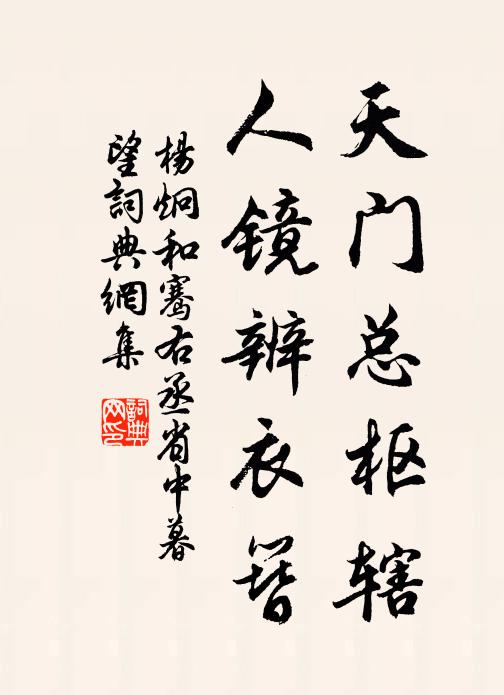 天门总枢辖
人镜辨衣簪
楊炯和骞右丞省中暮
望詞典網集
詞典
网印